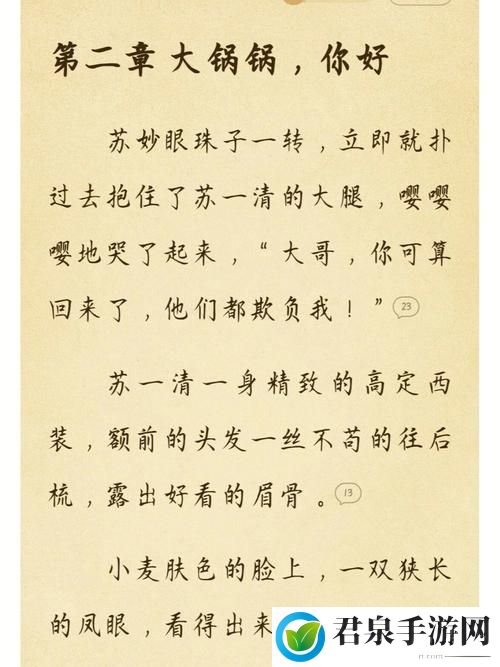 第二章 大锅锅，你好
苏妙眼珠子一转，立即就扑
过去抱住了苏一清的大腿，嘤嘤
嘤地哭了起来，“大哥，你可算
回来了，他们都欺负我！”23
苏一清一身精致的高定西
装，额前的头发一丝不苟的往后
梳，露出好看的眉骨。13
小麦肤色的脸上，一双狭长
的凤眼，看得出来
君泉手游网